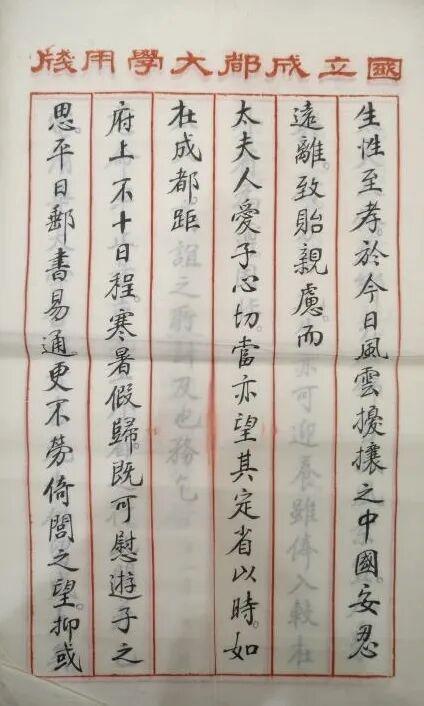 國立成都大學用牋
生性至孝。於今日風雲擾攘之中國。安忍
遠離。致貽親慮。而
太夫人愛子心切。當亦望其定省以時。如
在成都。距
府上不十日程。寒暑假歸。既可慰遊子之
思。平日郵書易通。更不勞倚閭之望。抑或